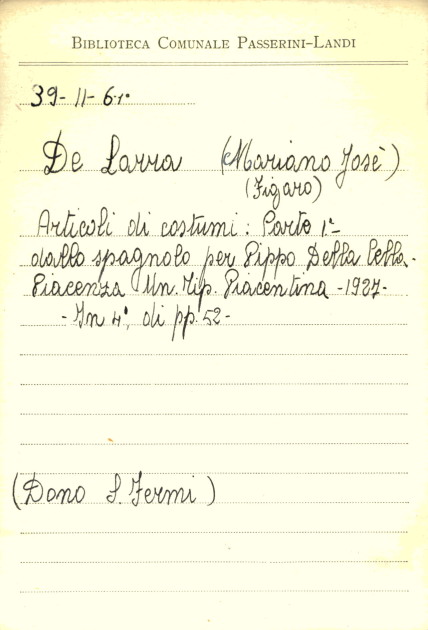 BIBLIOTECA COMUNALE PASSERINI-LANDI
39-11-61°
De Larra (Mariano Josè)
(Figaro)
Articoli di costumi: Parte 1ª-
dallo spagnolo per Pippo Della Cella-
Piacenza Un. Tip. Piacentina -1927-
-In 4°, di pp. 52-
(Dono S. Fermi)